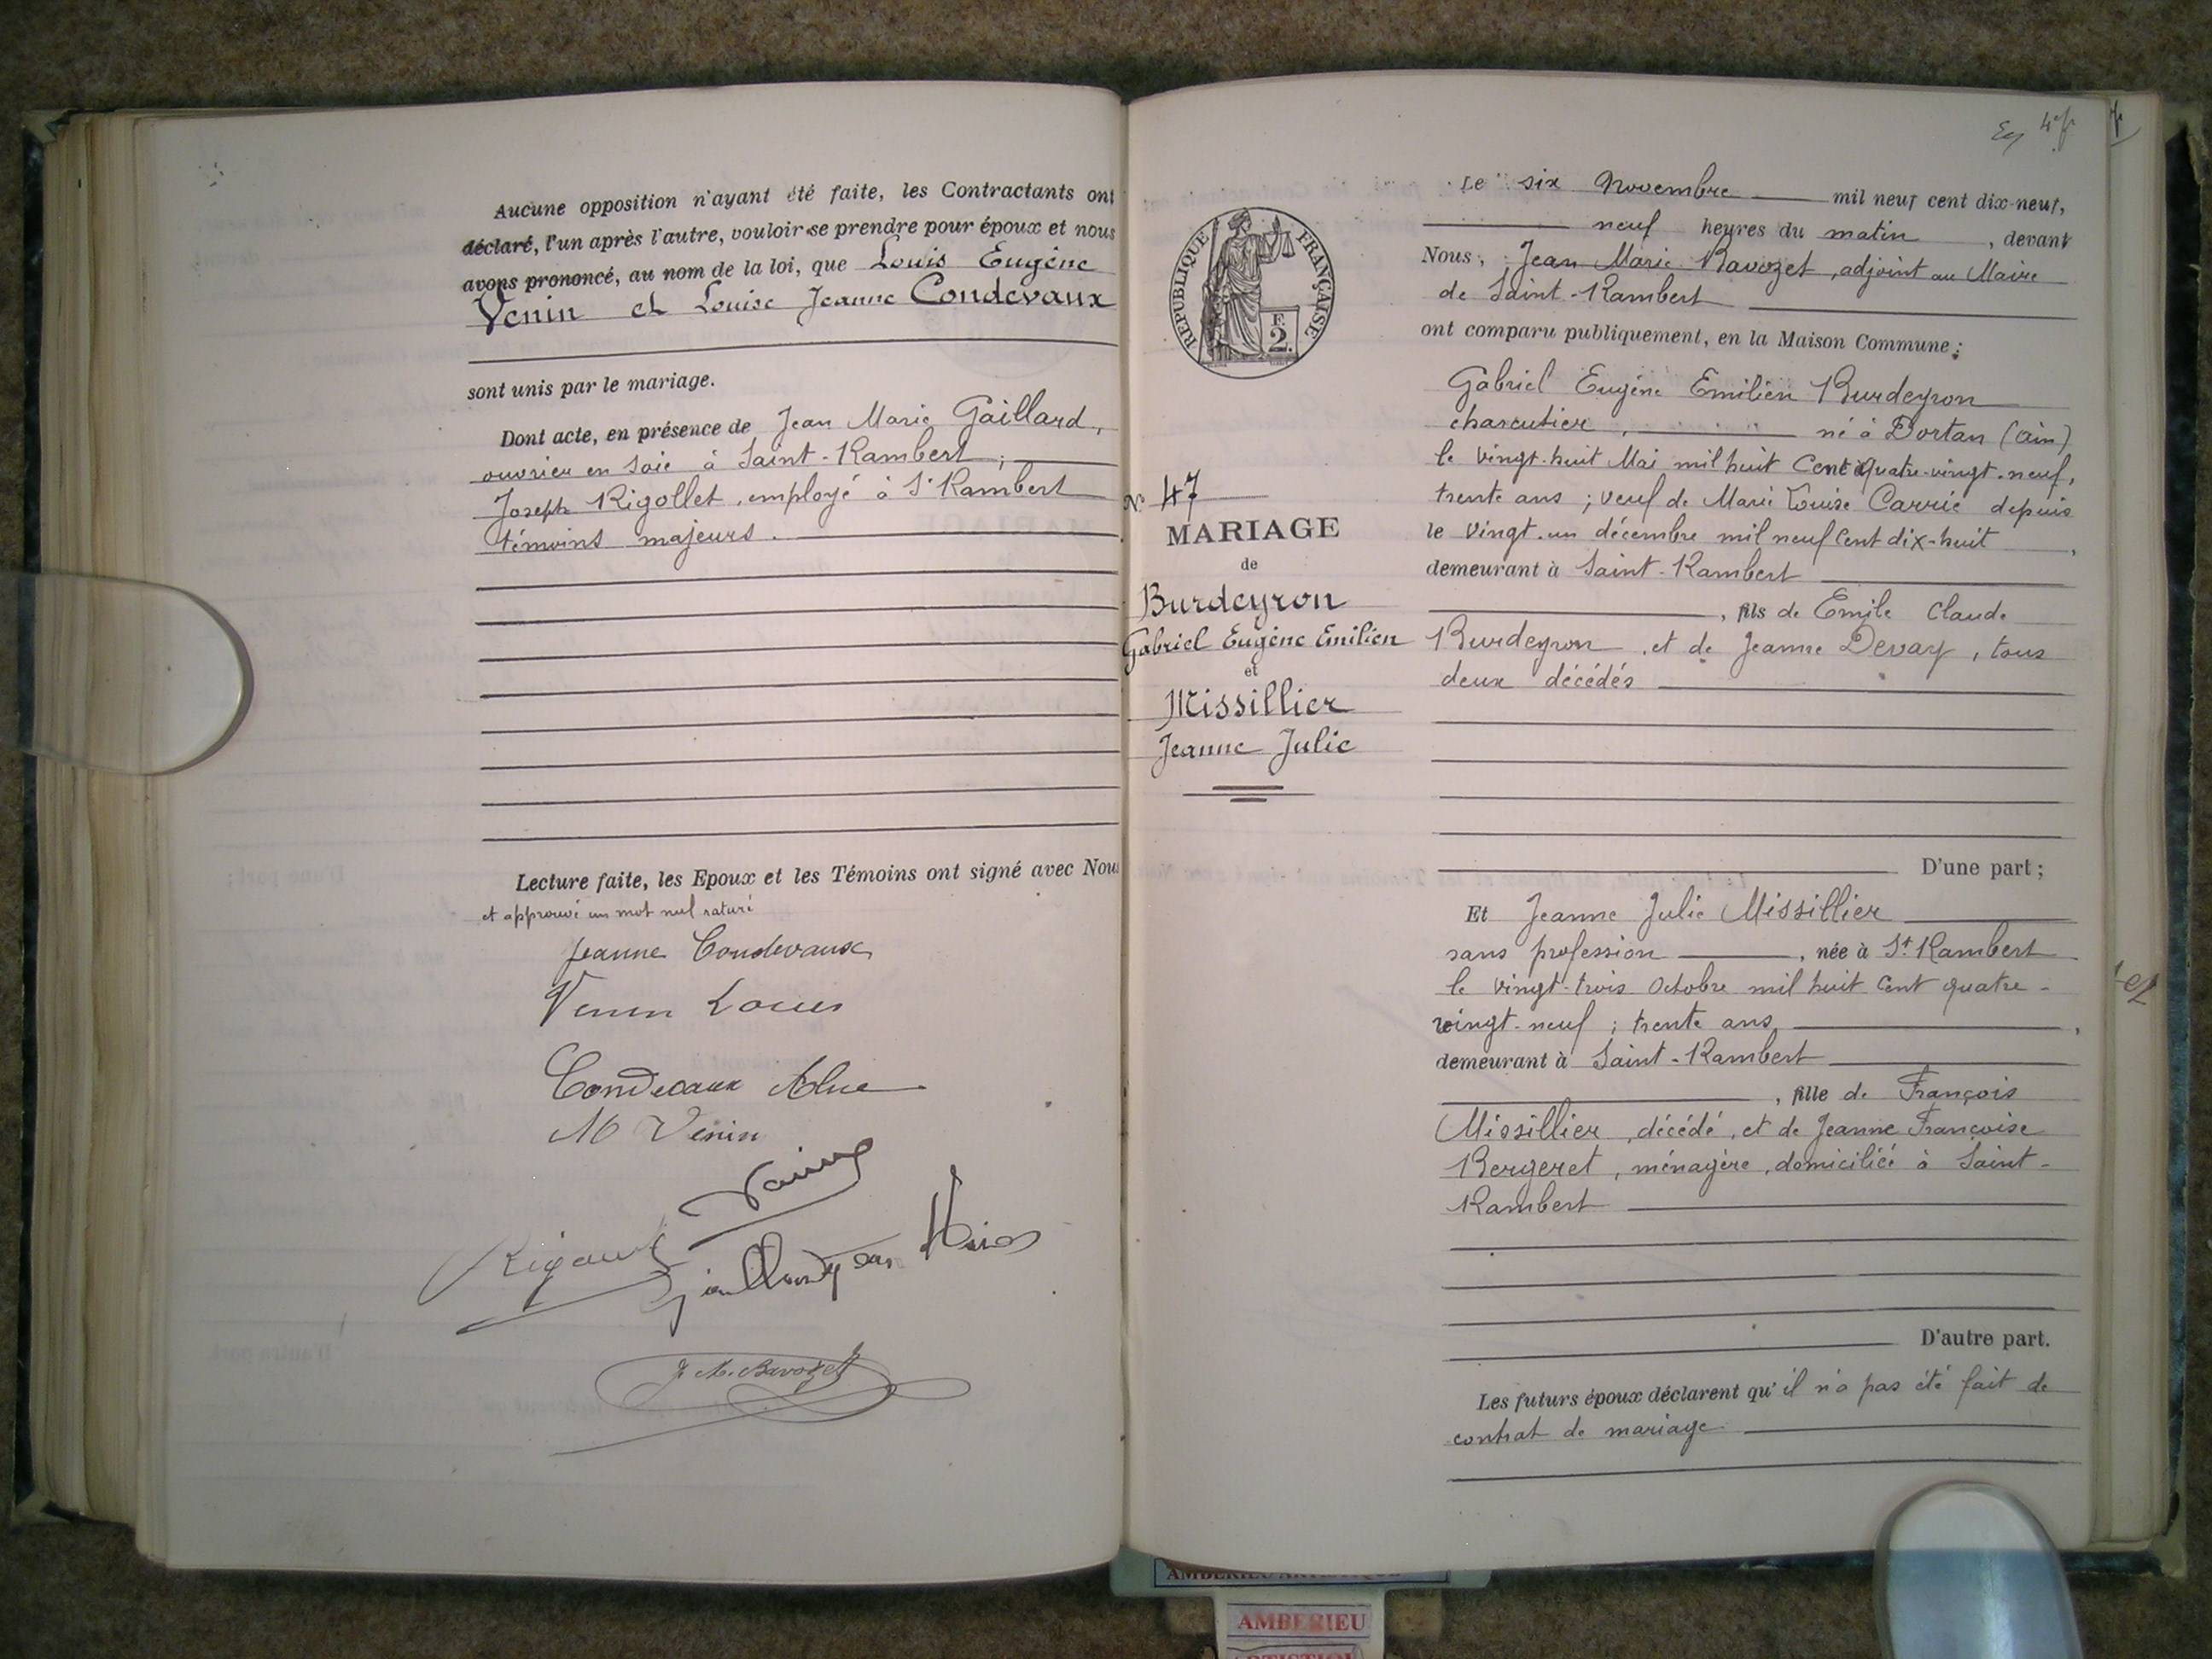 Aucune opposition n'ayant été faite, les Contractants ont
déclaré, l'un après l'autre, vouloir se prendre pour époux et nous
avons prononcé, au nom de la loi, que Louis Eugène
Venin et Louise Jeanne Condevaux
sont unis par le mariage.
Dont acte, en présence de Jean Marie Gaillard,
ouvrier en soie à Saint-Rambert ;
Joseph Rigollet, employé à St Rambert
témoins majeurs.
Lecture faite, les Epoux et les Témoins ont signé avec Nous
et approuvé un mot nul raturé
Jeanne Condevaux
Venin Louis
Condevaux
M Venin
J. M. Bavozet
RÉPUBLIQUE FRANÇAISE
F.
2.
No 47
MARIAGE
de
Burdeyron
Gabriel Eugène Emilien
et
Missillier
Jeanne Julie
Le six Novembre mil neuf cent dix-neuf,
neuf heures du matin, devant
Nous, Jean Marie Bavozet, adjoint au Maire
de Saint-Rambert
ont comparu publiquement, en la Maison Commune :
Gabriel Eugène Emilien Burdeyron
charcutier, né à Dortan (Ain)
le vingt-huit Mai mil huit Cent quatre-vingt-neuf,
trente ans ; veuf de Marie Louise Carrié depuis
le vingt-un décembre mil neuf cent dix-huit,
demeurant à Saint-Rambert
, fils de Emile Claude
Burdeyron, et de Jeanne Devay, tous
deux décédés
D'une part ;
Et Jeanne Julie Missillier
sans profession, née à St Rambert
le vingt-trois Octobre mil huit cent quatre-
vingt-neuf ; trente ans,
demeurant à Saint-Rambert
, fille de François
Missillier, décédé, et de Jeanne Françoise
Bergeret, ménagère, domiciliée à Saint-
Rambert
D'autre part.
Les futurs époux déclarent qu'il n'a pas été fait de
contrat de mariage
AMBERIEU ARTISTIQUE
AMBERIEU